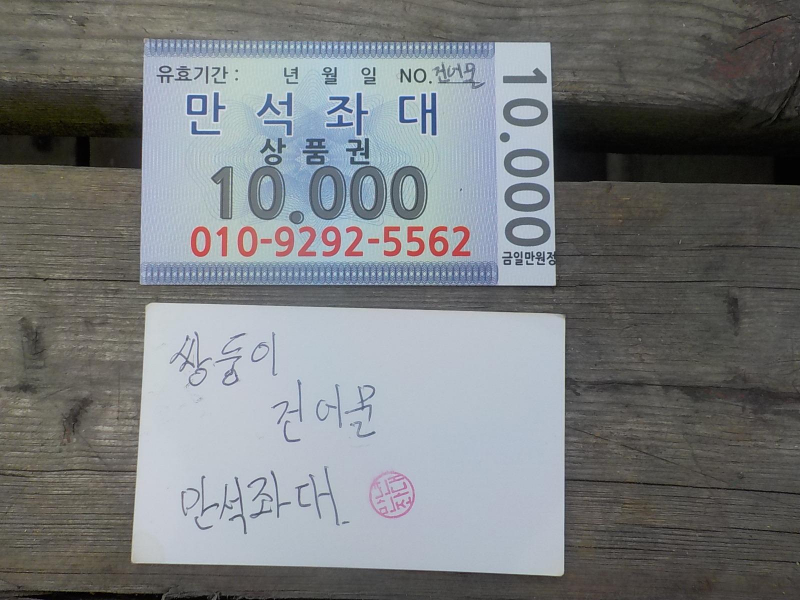 유효기간 : 년 월 일 NO.건어물
만석좌대
상품권
10.000
010-9292-5562
10.000
금일만원정
쌍둥이
건어물
만석좌대.
만석좌대